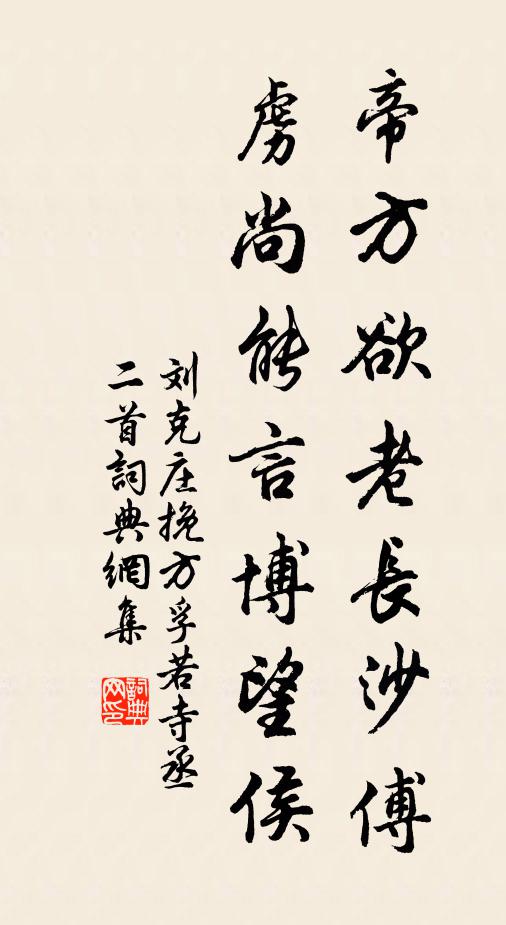 帝方欲老長沙傅
虜尚能言博望侯
刘克庄挽方孚若寺丞
二首詞典網集
詞典
网印